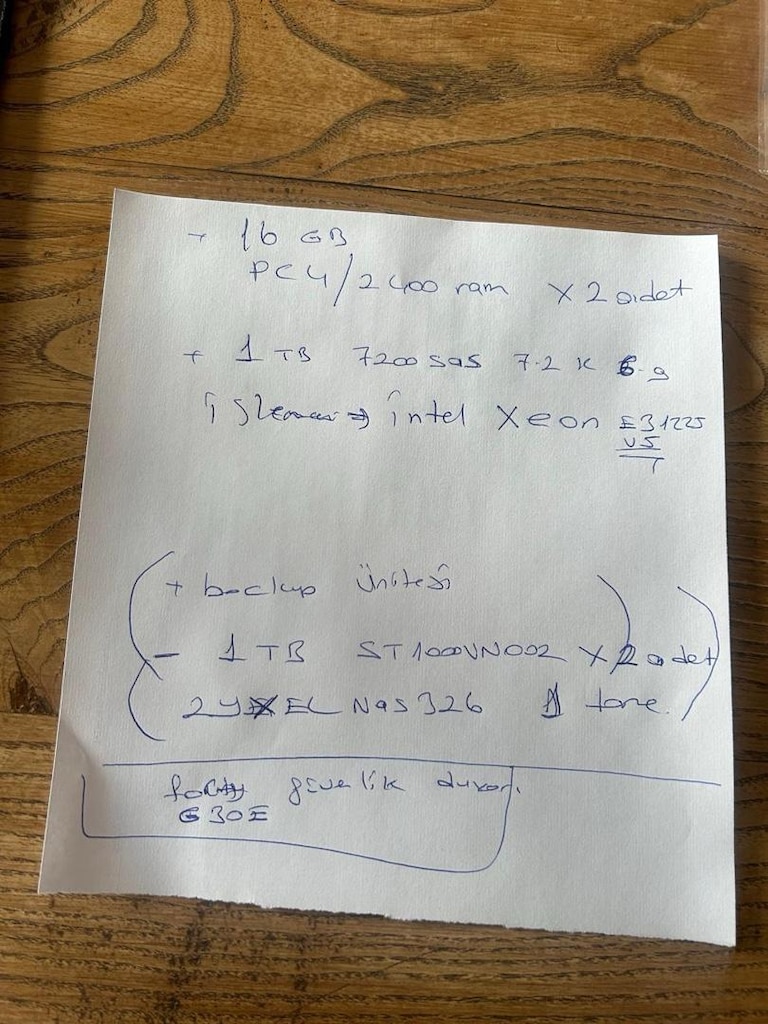 + 16 GB
PC4/2400 ram x 2 aidet
+ 1 TB 7200 sas 7.2 K 6.g
işlemcı → intel Xeon E31225
v5
+ backup ünitesi
- 1 TB ST1000VN002 x 2 adet
ZYXEL Nas 326 1 tane.
güvelik duvarı
G30E